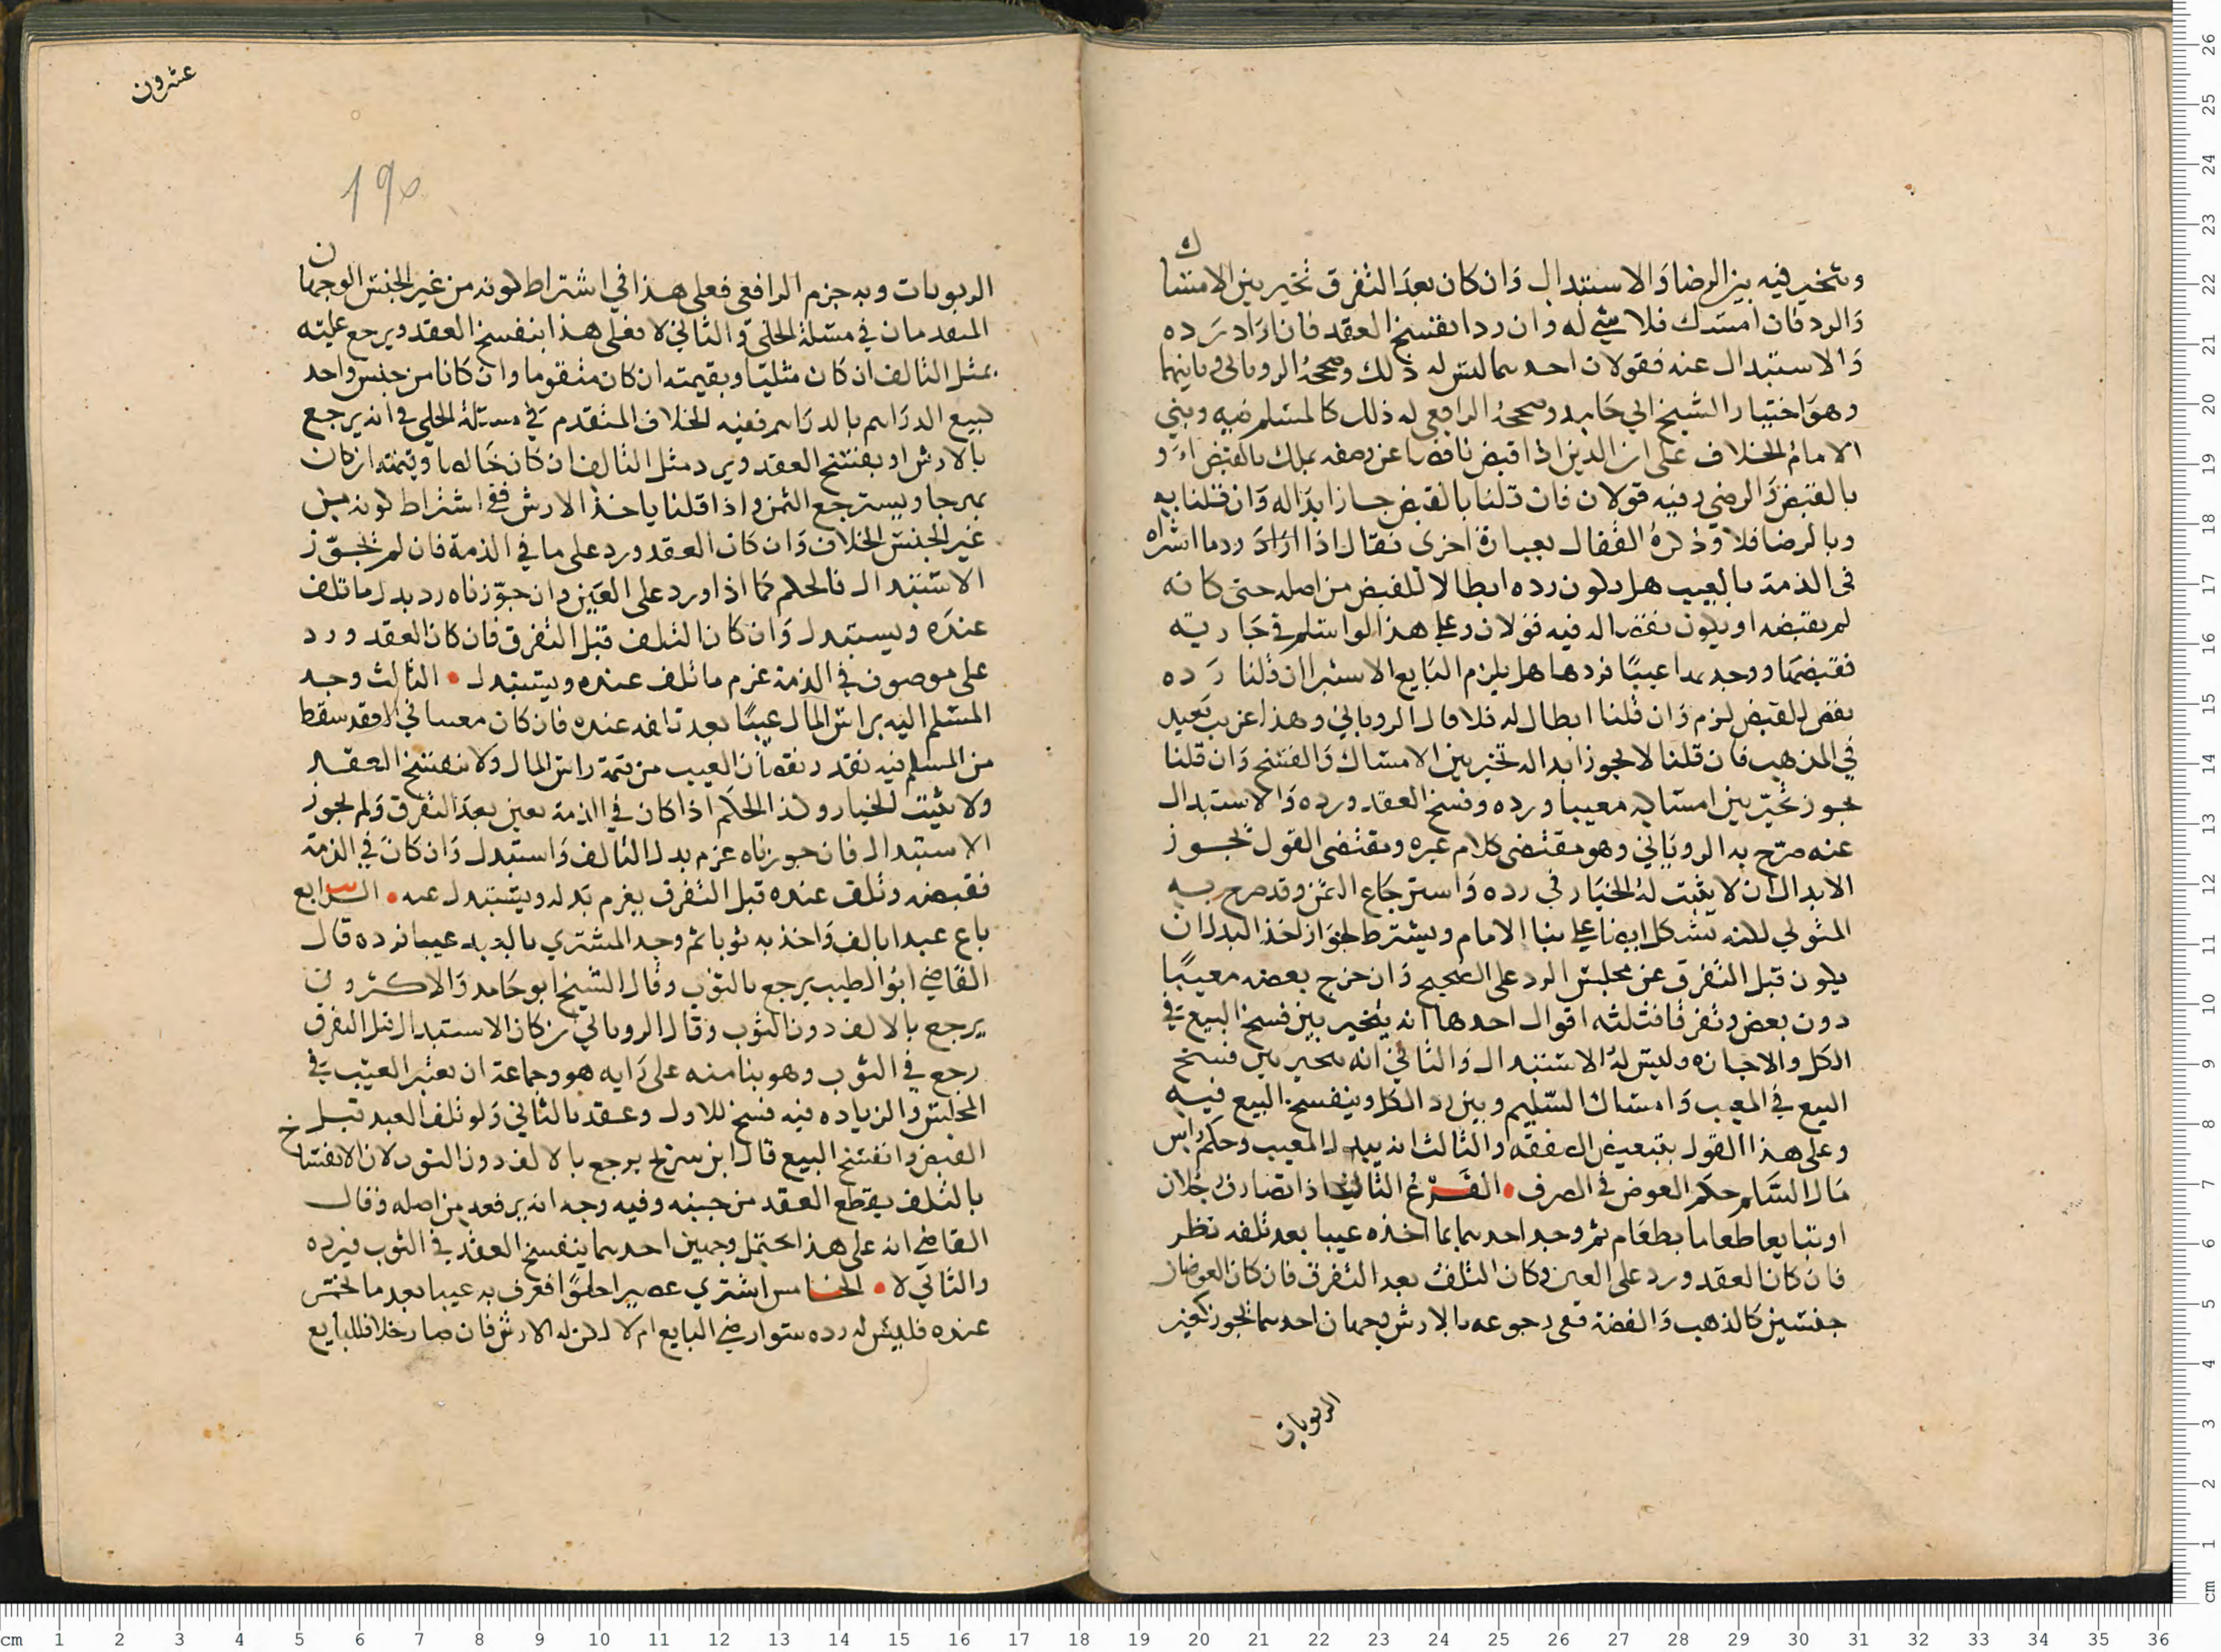 ويتخير فيه بين الرضا والاستبدال وان كان بعد التفرق تخير بين الامساك
والرد فان امسك فلا شي له وان رد انفسخ العقد فان اراد رده
والاستبدال عنه فقولان احدهما ليس له ذلك وصححه الروياني وثانيهما
وهو اختيار الشيخ ابي حامد وصححه الرافعي له ذلك كالمسلم فيه وبني
الامام الخلاف على ان الدين اذا قبض ناقصا عن وصفه يملك بالقبض او
بالقبض والرضى وفيه قولان فان قلنا بالقبض جاز ابداله وان قلنا به
وبالرضا فلا وذكره القفال بعبارة اخرى فقال اذا اراد رد ما اشتراه
في الذمة بالعيب هل يكون رده ابطالا للقبض من اصله حتى كانه
لم يقبضه او يكون نقضا له فيه قولان وعلى هذا لو اسلم في جارية
فقبضها ووجد بها عيبًا فردها هل يلزم البايع الاستبرا ان قلنا رده
نقض للقبض لزم وان قلنا ابطال له فلا قال الروياني وهذا غريب بعيد
في المذهب فان قلنا لا يجوز ابداله تخير بين الامساك والفسخ وان قلنا
يجوز تخيّر بين امساكه معيبا ورده وفسخ العقد ورده والاستبدال
عنه صرّح به الروياني وهو مقتضى كلام غيره ومقتضى القول بجواز
الابدال ان لا يثبت له الخيار في رده واسترجاع الثمن وقد صرح به
المتولي لكنه يشكل ايضا على بنا الامام ويشترط لجواز اخذ البدل ان
يكون قبل التفرق عن مجلس الرد على الصحيح وان خرج بعضه معيبًا
دون بعض وتفرقا فثلثه اقوال احدها انه يتخير بين فسخ البيع في
الكل والاجازه وليس له الاستبدال والثاني انه يتخير بين فسخ
البيع في المعيب وامساك السّليم وبين رد الكل وينفسخ البيع فيه
وعلى هذا القول بتبعيض الصفقه والثالث انه يبدل المعيب وحكم راس
مال السّلم حكم العوض في الصرف • الفَرْع الثاني اذا تصارف رجلان
او تبايعا طعاما بطعام ثم وجد احدهما بما اخذه عيبا بعد تلفه نظر
فان كان العقد ورد على العين وكان التلف بعد التفرق فان كان العوضان
جنسين كالذهب والفضة ففي رجوعه بالارش وجهان احدهما يجوز كغير
الربويات
عشرون
195
الربويات وبه جزم الرافعي فعلى هذا في اشتراط كونه من غير الجنس الوجهان
المتقدمان في مسئلة الحلي والثاني لا فعلى هذا ينفسخ العقد ويرجع عليه
بمثل التالف ان كان مثليّا وبقيمته ان كان متقوما وان كانا من جنس واحد
كبيع الدراهم بالدراهم ففيه الخلاف المتقدم في مسئلة الحلي في انه يرجع
بالارش او يفسخ العقد ويرد مثل التالف ان كان خالصا وقيمته ان كان
بهرجا ويسترجع الثمن واذا قلنا ياخذ الارش ففي اشتراط كونه من
غير الجنس الخلاف وان كان العقد ورد على ما في الذمة فان لم نجوّز
الاستبدال فالحكم كما اذا ورد على العين وان جوّزناه رد بدل ما تلف
عنده ويستبدل وان كان التلف قبل التفرق فان كان العقد ورد
على موصوف في الذمة غرم ما تلف عنده ويستبدل • الثالث وجد
المسلم اليه براس المال عيبًا بعد تلفه عنده فان كان معينا في العقد سقط
من المسلم فيه بقدر نقصان العيب من قيمة راس المال ولا ينفسخ العقد
ولا يثبت الخيار وكذا الحكم اذا كان في الذمة بعين بعد التفرق ولم نجوز
الاستبدال فان جوزناه غرم بدل التالف واستبدل وان كان في الذمة
فقبضه وتلف عنده قبل التفرق يغرم بدله ويستبدل عنه • الرابع
باع عبدا بالف واخذ به ثوبا ثم وجد المشتري بالعبد عيبا فرده قال
القاضي ابو الطيب يرجع بالثوب وقال الشيخ ابو حامد والاكثرون
يرجع بالالف دون الثوب وقال الروياني ان كان الاستبدال قبل التفرق
رجع في الثوب وهو بنا منه على رايه هو وجماعة ان تغيير العيب في
المجلس والزياده فيه فسخ للاول وعقد بالثاني ولو تلف العبد قبل
القبض وانفسخ البيع قال ابن سريج يرجع بالالف دون الثوب لان الانفساخ
بالتلف يقطع العقد من حينه وفيه وجه انه يرفعه من اصله وقال
القاضي انه على هذا يحتمل وجهين احدهما ينفسخ العقد في الثوب فيرده
والثاني لا • الخامس اشترى عصيرا حلوًا فعرف به عيبا بعد ما تخمر
عنده فليس له رده سوا رضي البايع ام لا لكن له الارش فان صار خلا فللبايع